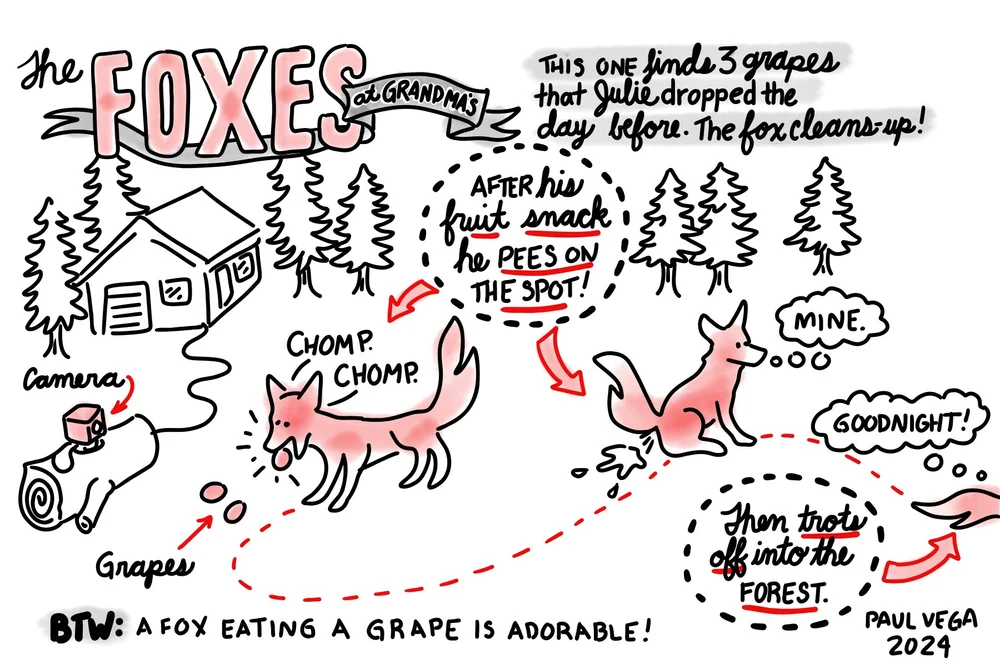 The FOXES at GRANDMA'S
THIS ONE finds 3 grapes
that Julie dropped the
day before. The fox cleans-up!
AFTER his
fruit snack
he PEES ON
THE SPOT!
CHOMP.
CHOMP.
MINE.
Camera
GOODNIGHT!
Grapes
Then trots
off into the
FOREST.
BTW: A FOX EATING A GRAPE IS ADORABLE!
PAUL VEGA
2024